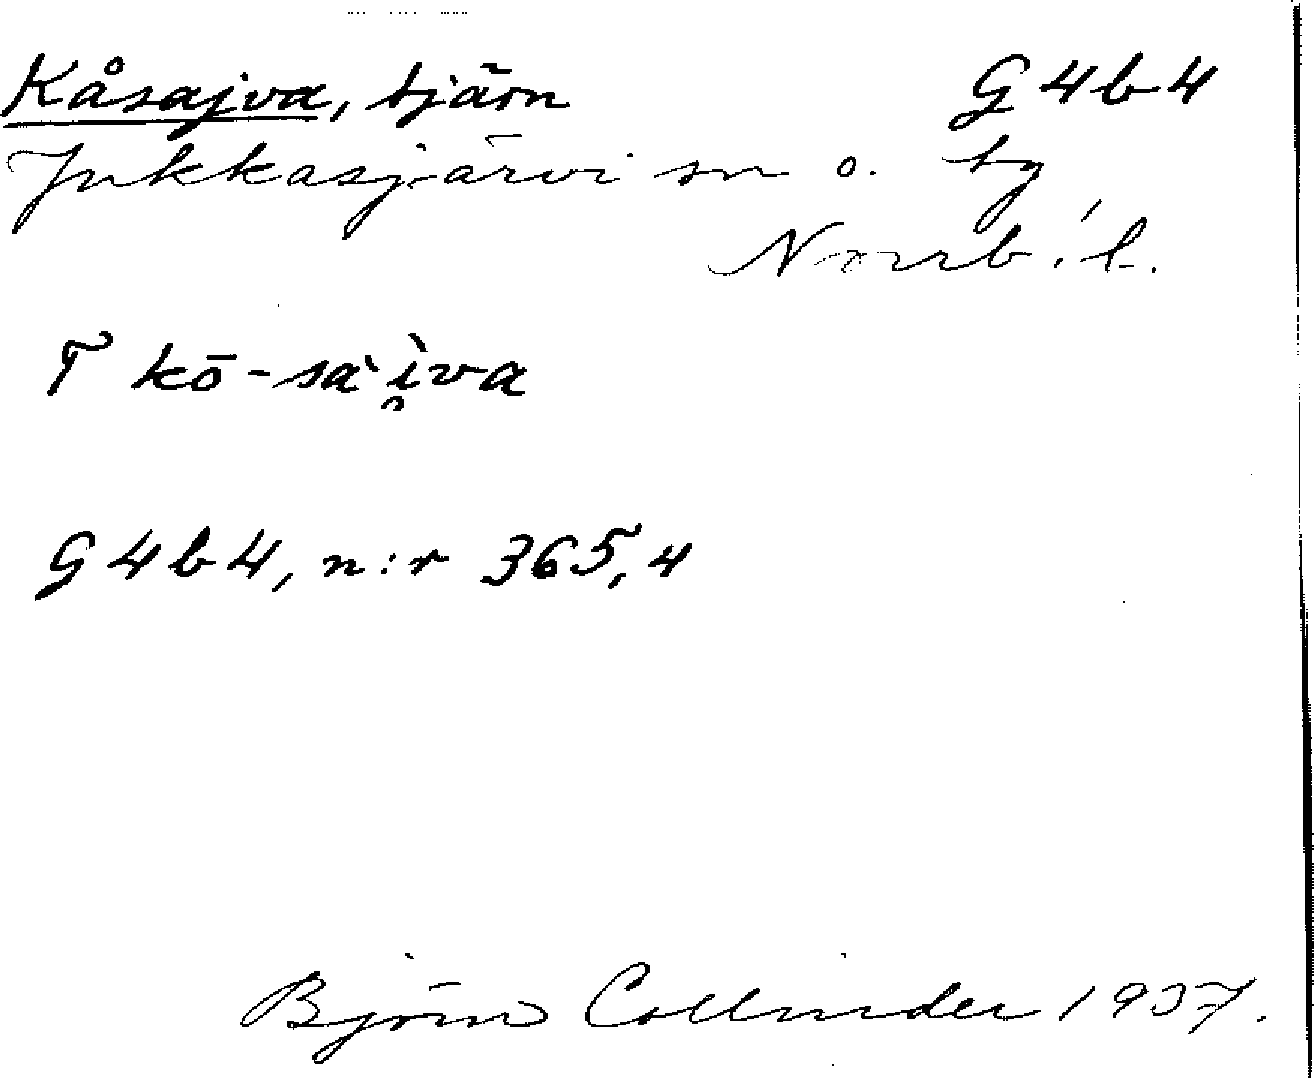 Kåsajva, tjärn G4b4
Jukkasjärvi sn o. by
Norrb. l.
T kō-sàì̯va
G4b4, n:r 365,4
Björn Collinder 1937.